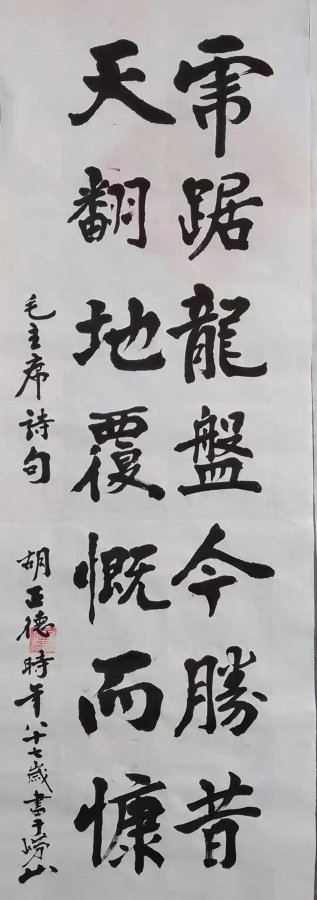 虎踞龍盤今勝昔
天翻地覆慨而慷
毛主席詩句 胡正德時年八十七歲書于嶗山